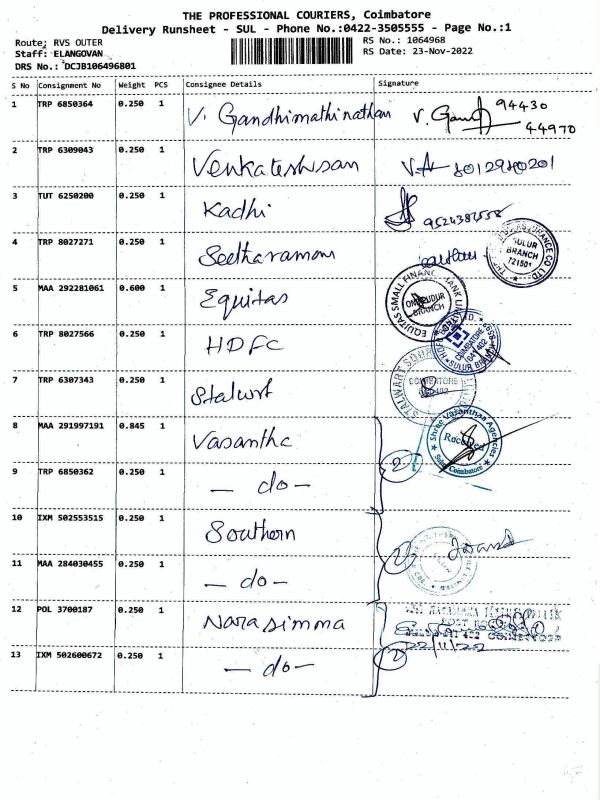 THE PROFESSIONAL COURIERS, Coimbatore
Delivery Runsheet - SUL - Phone No.:0422-3505555 - Page No.:1
Route: RVS OUTER
RS No.: 1064968
Staff: ELANGOVAN
RS Date: 23-Nov-2022
DRS No.: DCJB106496801
S No Consignment No Weight PCS Consignee Details Signature
1 TRP 6850364 0.250 1 V. Gandhimathinathan V. Gand 94430
44970
2 TRP 6309043 0.250 1 Venkateshsan 8012980201
3 TUT 6250200 0.250 1 Kadhi
4 TRP 8027271 0.250 1 Seetharaman
SULUR
BRANCH
721501
5 MAA 292281061 0.600 1 Equitas
EQUITAS SMALL FINANCE BANK
BRANCH
6 TRP 8027566 0.250 1 HDFC
COIMBATORE
641402
SULUR BRANCH
7 TRP 6307343 0.250 1 Stalwrt
COIMBATORE
8 MAA 291997191 0.845 1 Vasantha
Shree Vasanthaa Agencies
Received
Sulur Coimbatore
9 TRP 6850362 0.250 1 — do — 2
10 IXM 502553515 0.250 1 Southern
11 MAA 284030455 0.250 1 — do — 2
12 POL 3700187 0.250 1 Narasimma
22/11/22
13 IXM 502600672 0.250 1 — do — 2